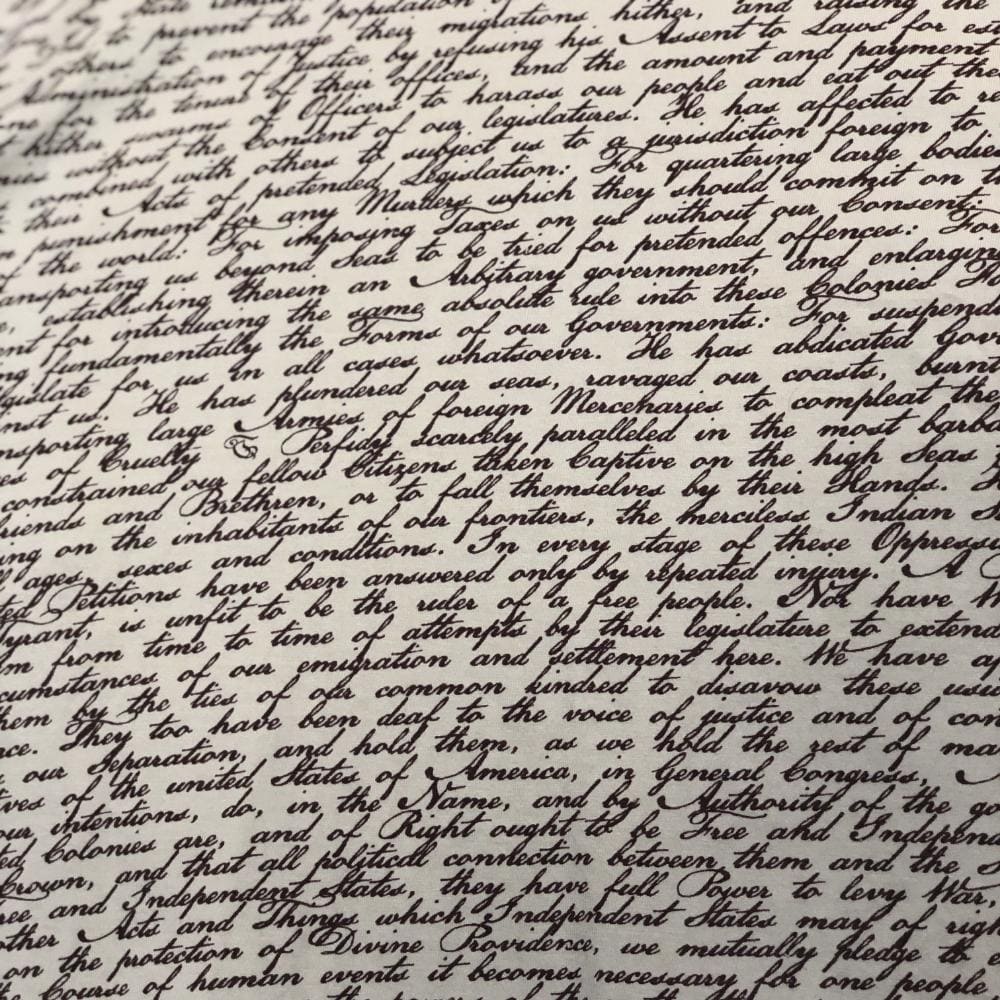 State
to prevent the population
others to encourage their migrations hither, and raising the
Administration of Justice by refusing his Assent to Laws for est
one for the tenure of their offices, and the amount and payment
hither swarms of Officers to harass our people and eat out the
ries without the Consent of our legislatures. He has affected to re
combined with others to subject us to a jurisdiction foreign to
their Acts of pretended Legislation: For quartering large bodies
punishment for any Murders which they should commit on t
f the world: For imposing Taxes on us without our Consent:
ansporting us beyond Seas to be tried for pretended offences: For
e, establishing therein an Arbitrary government, and enlarging
ent for introducing the same absolute rule into these Colonies Fo
ng fundamentally the Forms of our Governments: For suspend
gislate for us in all cases whatsoever. He has abdicated Gov
inst us. He has plundered our seas, ravaged our coasts, burnt
nsporting large Armies of foreign Mercenaries to compleat the
es of Cruelty & Perfidy scarcely paralleled in the most barba
constrained our fellow Citizens taken Captive on the high Seas
friends and Brethren, or to fall themselves by their Hands. H
ing on the inhabitants of our frontiers, the merciless Indian S
l ages, sexes and conditions. In every stage of these Oppressi
ted Petitions have been answered only by repeated injury. A
Tyrant, is unfit to be the ruler of a free people. Nor have W
m from time to time of attempts by their legislature to extend
cumstances of our emigration and settlement here. We have ap
hem by the ties of our common kindred to disavow these usu
nce. They too have been deaf to the voice of justice and of con
our Separation, and hold them, as we hold the rest of man
ives of the united States of America, in General Congress,
our intentions, do, in the Name, and by Authority of the go
ted Colonies are, and of Right ought to be Free and Independ
Crown, and that all political connection between them and the S
ree and Independent States, they have full Power to levy War,
other Acts and Things which Independent States may of righ
on the protection of Divine Providence, we mutually pledge to e
the Course of human events it becomes necessary for one people